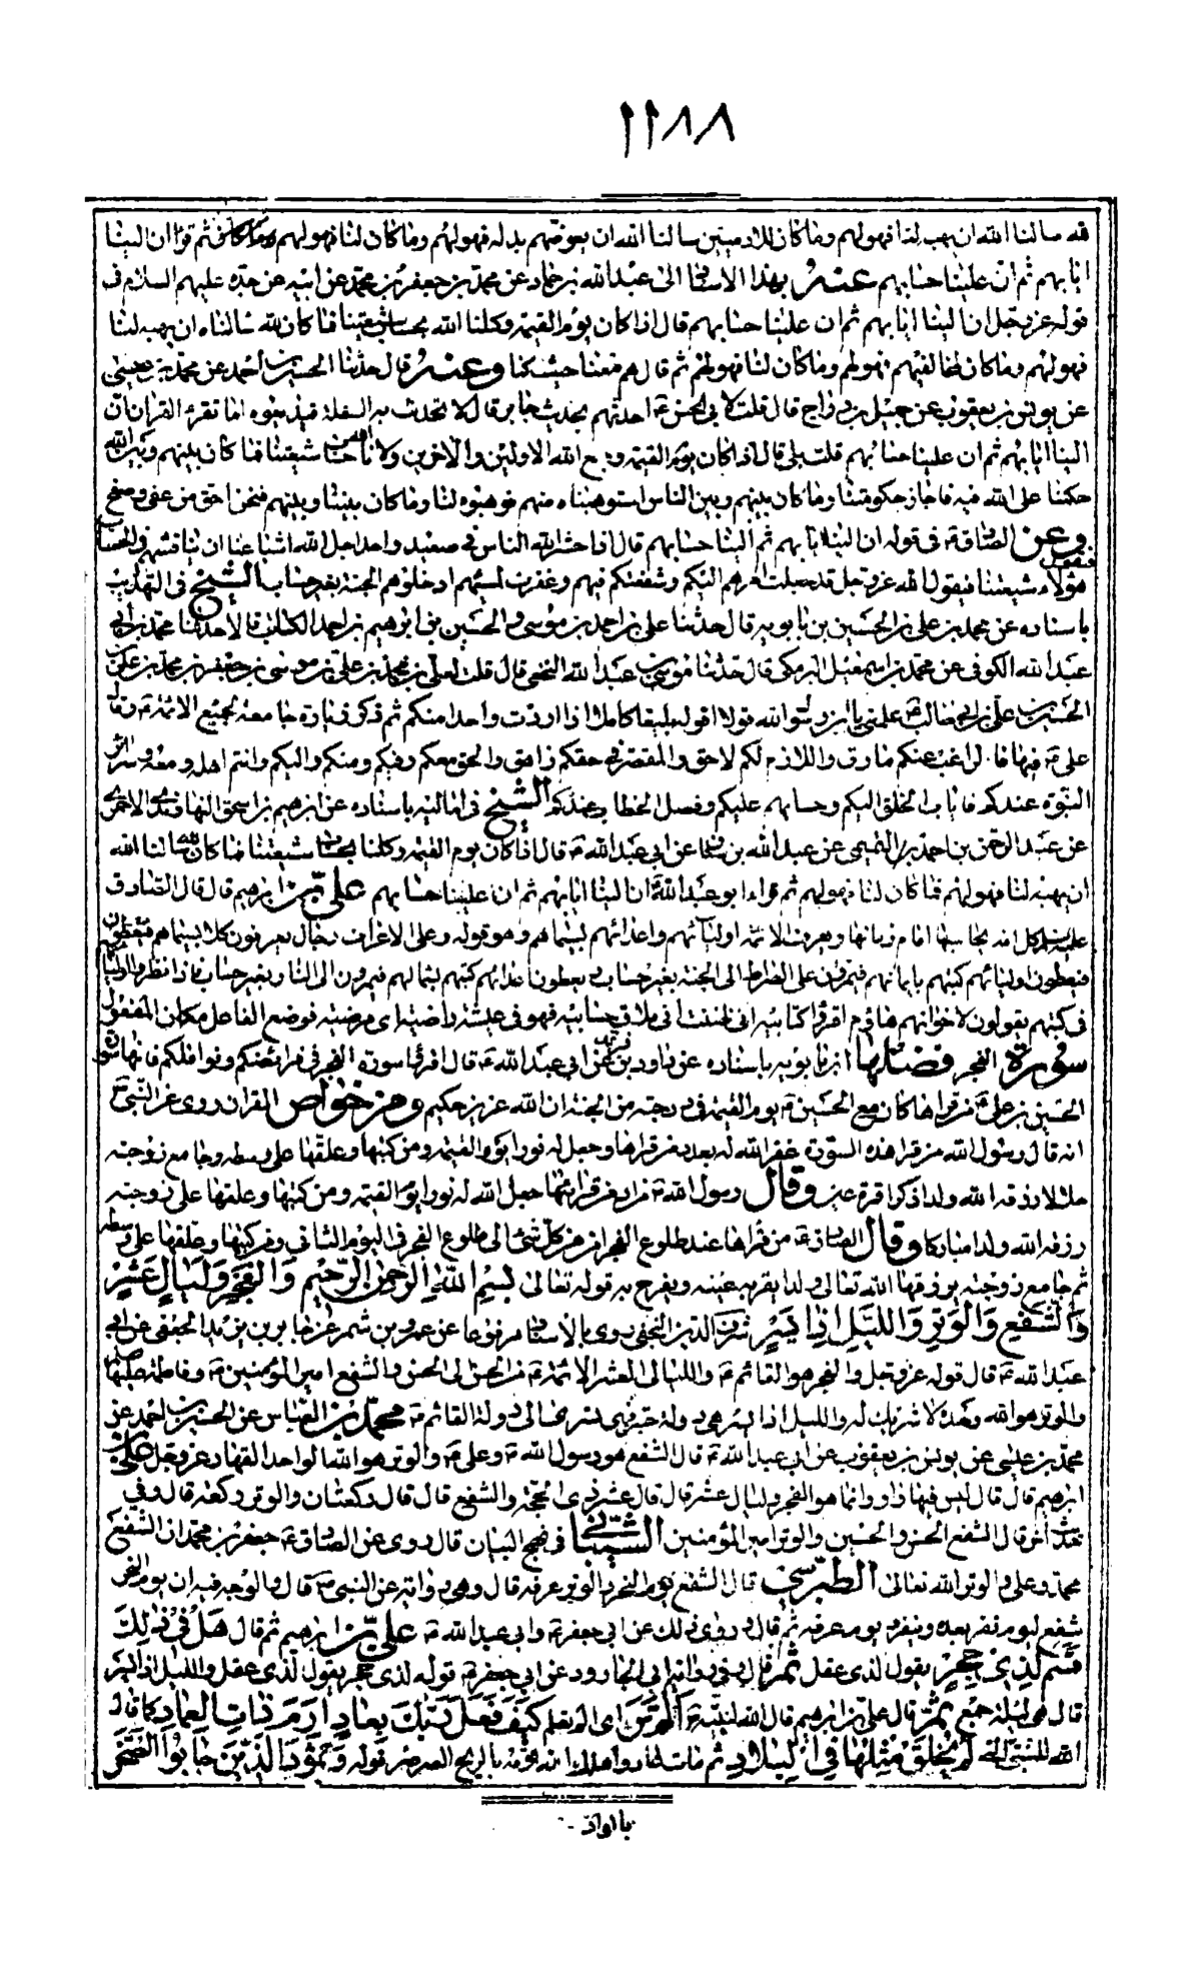 ١١٨٨
لله سالنا الله ان يهب لنا فهو لهم وما كان للادميين سالنا الله ان يعوضهم بدله فهو لهم وما كان لنا فهو لهم ثم قرا ان الينا
ايابهم ثم ان علينا حسابهم وعنه بهذا الاسناد الى عبد الله بن حماد عن محمد بن جعفر بن محمد عن ابيه عن جده عليهم السلام في
قوله عز وجل ان الينا ايابهم ثم ان علينا حسابهم قال اذا كان يوم القيمة وكلنا الله بحساب شيعتنا فما كان لله سالناه ان يهبه لنا
فهو لهم وما كان لمخالفيهم فهو لهم وما كان لنا فهو لهم ثم قال هم معنا حيث كنا وعنه قال حدثنا الحسين بن احمد عن محمد بن عيسى
عن يونس بن يعقوب عن جميل بن دراج قال قلت لابي الحسن ع احدثهم بحديث جابر قال لا تحدث به السفلة فيذيعوه اما تقرء القران ان
الينا ايابهم ثم ان علينا حسابهم قلت بلى قال اذا كان يوم القيمة وجمع الله الاولين والاخرين ولانا حساب شيعتنا فما كان بينهم وبين الله
حكمنا على الله فيه فاجاز حكومتنا وما كان بينهم وبين الناس استوهبناه منهم فوهبوه لنا وما كان بيننا وبينهم فنحن احق من عفى وصفح
وعن الصادق ع في قوله ان الينا ايابهم ثم ان علينا حسابهم قال اذا حشر الله الناس في صعيد واحد اجل الله اشياعنا ان يناقشهم في الحساب فنقول
هؤلاء شيعتنا فيقول الله عز وجل قد جعلت امرهم اليكم وشفعتكم فيهم وغفرت لمسيئهم ادخلوهم الجنة بغير حساب الشيخ في التهذيب
باسناده عن محمد بن علي بن الحسين بن بابويه قال حدثنا علي بن احمد بن موسى والحسين بن ابراهيم بن احمد الكاتب قالا حدثنا محمد بن ابي
عبد الله الكوفي عن محمد بن اسمعيل البرمكي قال حدثنا موسى بن عبد الله النخعي قال قلت لعلي بن محمد بن علي بن موسى بن جعفر بن محمد بن علي بن
الحسين بن علي بن ابي طالب ع علمني يابن رسول الله قولا اقوله بليغا كاملا اذا زرت واحدا منكم ثم ذكر في زيارة جامعة لجميع الائمة ع وقال
علي ع فيها فالراغب عنكم مارق واللازم لكم لاحق والمقصر في حقكم زاهق والحق معكم وفيكم ومنكم واليكم وانتم اهله ومعدنه وميراث
النبوة عندكم واياب الخلق اليكم وحسابهم عليكم وفصل الخطاب عندكم الشيخ في اماليه باسناده عن ابرهيم بن اسحق النهاوندي الاحمري
عن عبد الرحمن بن احمد التميمي عن عبد الله بن سنان عن ابي عبد الله ع قال اذا كان يوم القيمة وكلنا بحساب شيعتنا فما كان لله سالنا الله
ان يهبه لنا فهو لهم فما كان لنا فهو لهم ثم قراء ابو عبد الله ع ان الينا ايابهم ثم ان علينا حسابهم علي بن ابرهيم قال قال الصادق
عليه السلام كل امة يحاسبها امام زمانها ويعرف الائمة اوليائهم واعدائهم بسيماهم وهو قوله وعلى الاعراف رجال يعرفون كلا بسيماهم فيعطون
فيعطون اوليائهم كتبهم بايمانهم فيمرون على الصراط الى الجنة بغير حساب ويعطون اعدائهم كتبهم بشمالهم فيمرون الى النار بغير حساب فاذا نظر اوليائهم
في كتبهم يقولون لاخوانهم هاؤم اقرؤا كتابيه اني ظننت اني ملاق حسابيه فهو في عيشة راضية اى مرضية فوضع الفاعل مكان المفعول
سورة الفجر فضلها ابن بابويه باسناده عن داود بن فرقد عن ابي عبد الله ع قال اقرؤا سورة الفجر في فرائضكم ونوافلكم فانها سورة
الحسين بن علي ع من قراها كان مع الحسين ع يوم القيمة في درجته من الجنة ان الله عزيز حكيم ومن خواص القران روى عن النبي ص
انه قال رسول الله من قرا هذه السورة غفر الله له بعدد من قراها وجعل له نورا يوم القيمة ومن كتبها وعلقها على وسطه وجامع زوجته
حلالا رزقه الله ولدا ذكرا قرة عين وقال رسول الله ص من ادمن قرائتها جعل الله له نورا يوم القيمة ومن كتبها وعلقها على زوجته
رزقه الله ولدا مباركا وقال الصادق ع من قراها عند طلوع الفجر امن من كل شئ الى طلوع الفجر في اليوم الثاني ومن كتبها وعلقها على وسطه
ثم جامع زوجته يرزقها الله تعالى ولدا يقر به عينه ويفرح به قوله تعالى بسم الله الرحمن الرحيم والفجر وليال عشر
والشفع والوتر والليل اذا يسر شرف الدين النجفي روى بالاسناد مرفوعا عن عمرو بن شمر عن جابر بن يزيد الجعفي عن ابي
عبد الله ع قال قوله عز وجل والفجر هو القائم ع والليالي العشر الائمة ع من الحسن الى الحسن والشفع امير المؤمنين ع وفاطمة عليها
والوتر هو الله وحده لا شريك له والليل اذا يسر هي دولة حبتر فهي تسري الى دولة القائم ع محمد بن العباس عن الحسين بن احمد عن
محمد بن عيسى عن يونس بن يعقوب عن ابي عبد الله ع قال الشفع هو رسول الله ص وعلي ع والوتر هو الله الواحد القهار عز وجل علي بن
ابرهيم قال قال ليس فيها واو وانما هو الفجر وليال عشر قال قال عشر ذي الحجة والشفع قال قال ركعتان والوتر ركعة قال وفي
حديث اخر قال الشفع الحسن والحسين والوتر امير المؤمنين الشيباني في نهج البيان قال روى عن الصادق ع جعفر بن محمد ان الشفع
محمد وعلي والوتر الله تعالى الطبرسي قال الشفع يوم النحر والوتر عرفة قال وهي رواية عن النبي ص قال والوجه فيه ان يوم النحر
شفع ليوم نفر بعده وينفرد يوم عرفة ثم قال روى ذلك عن ابي جعفر ع وابي عبد الله ع علي بن ابرهيم ثم قال هل في ذلك
قسم لذي حجر يقول لذى عقل ثم قال وفي رواية ابي الجارود عن ابي جعفر ع قوله لذى حجر يقول لذى عقل والليل اذا يسر
قال هي ليلة جمع ثم قال علي بن ابرهيم قال الله لنبيه ص الم تر اى الم تعلم كيف فعل ربك بعاد ارم ذات العماد كما قال
الله للنبي لم يخلق مثلها في البلاد ثم مات عاد واهلك الله قومه بالريح الصرصر قوله وثمود الذين جابوا الصخر
بالواد